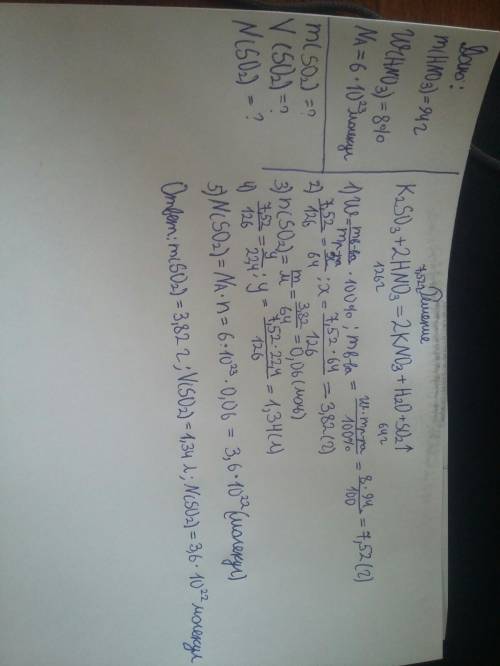 Дано:
m(HNO₃) = 94г
W(HNO₃) = 8%
N_A = 6·10²³ молекул
m(SO₂) = ?
V(SO₂) = ?
N(SO₂) = ?
Решение
7,52г
K₂SO₃ + 2HNO₃ = 2KNO₃ + H₂O + SO₂↑
126г 64г
1) W = mв-ва/mр-ра · 100%; mв-ва = W·mр-ра/100% = 8·94/100 = 7,52(г)
2) 7,52/126 = x/64; x = 7,52·64/126 = 3,82(г)
3) n(SO₂) = m/M = 3,82/64 = 0,06(моль)
4) 7,52/126 = y/22,4; y = 7,52·22,4/126 = 1,34(л)
5) N(SO₂) = N_A·n = 6·10²³·0,06 = 3,6·10²² (молекул)
Ответ: m(SO₂) = 3,82 г; V(SO₂) = 1,34 л; N(SO₂) = 3,6·10²² молекул